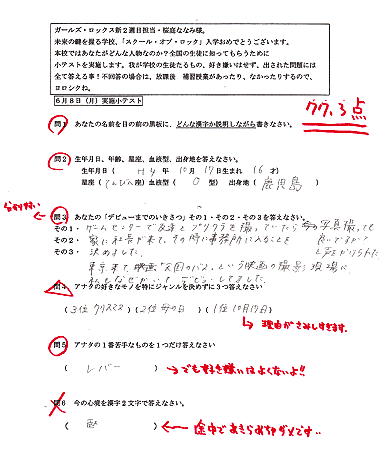 ガールズ・ロックス新2週目担当・桜庭ななみ様。
未来の鍵を握る学校、「スクール・オブ・ロック」入学おめでとうございます。
本校ではあなたがどんな人物なのか？全国の生徒に知ってもらうために
小テストを実施します。我が学校の生徒たるもの、好き嫌いはせず、出された問題には
全て答える事！不回答の場合は、放課後 補習授業があったり、なかったりするので、
ヨロシクね。
6月8日（月）実施小テスト
77.3点
問1 あなたの名前を目の前の黒板に、どんな漢字か説明しながら書きなさい。
問2 生年月日、年齢、星座、血液型、出身地を答えなさい。
生年月日（ H4 年 10 月 17 日生まれ 16 才）
星座（てんびん座）血液型（ O 型） 出身地（ 鹿児島 ）
問3 あなたの「デビューまでのいきさつ」その1・その2・その3を答えなさい。
その1・ゲームセンターで友達とプリクラを撮っていたら 写真撮っても
その2・家に社長が来て、その時に事務所に入ることを 良いですか？
その3・決めました。 と声をかけられた
東京に来て、映画「天国のバス」という映画の撮影現場に
問4 アナタの好きなモノを特にジャンルを決めずに3つ答えなさい
（3位 クリスマス）（2位 母の日）（1位 10月17日）
理由がさみしすぎます。
問5 アナタの1番苦手なものを1つだけ答えなさい
（ レバー ）
でも好き嫌いはよくないよ!!
問6 今の心境を漢字2文字で答えなさい。
途中であきらめちゃダメです…